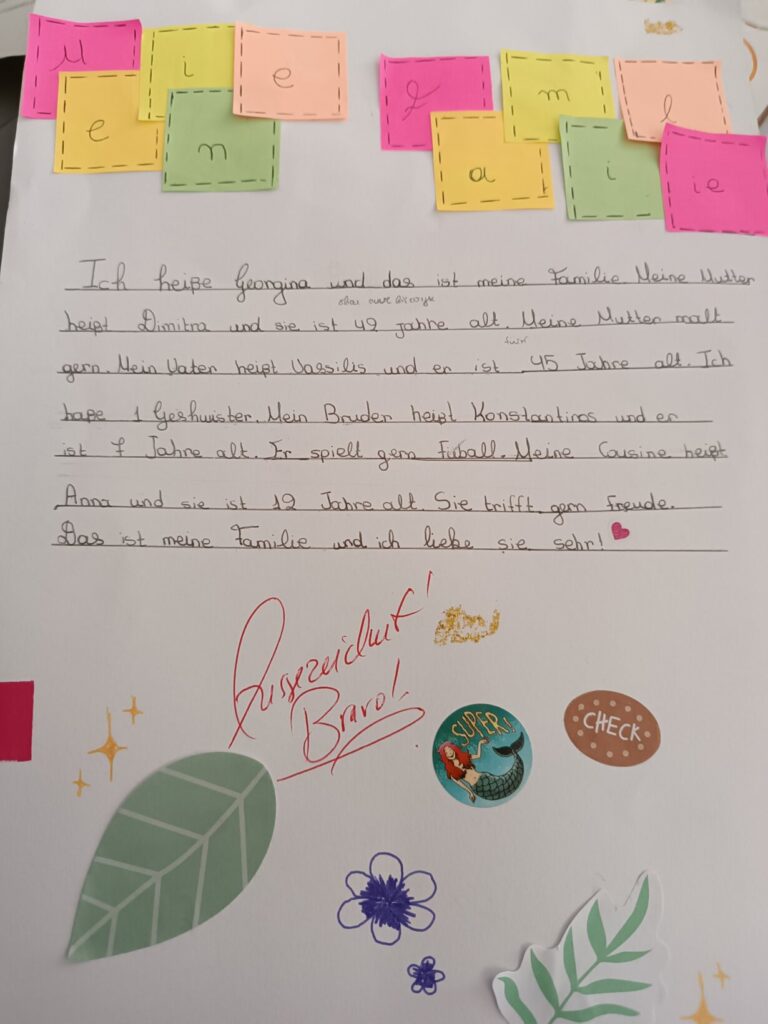 Meine Familie
Ich heiße Georgina und das ist meine Familie. Meine Mutter
heißt Dimitra und sie ist 42 jahre alt. Meine Mutter malt
gern. Mein Vater heißt Vassilis und er ist 45 Jahre alt. Ich
habe 1 Geshwister. Mein Bruder heißt Konstantinos und er
ist 7 Jahre alt. Er spielt gern Fußall. Meine Cousine heißt
Anna und sie ist 12 Jahre alt. Sie trifft gern Freude.
Das ist meine Familie und ich liebe sie sehr!
Ausgezeichnet!
Bravo!
SUPER!
CHECK